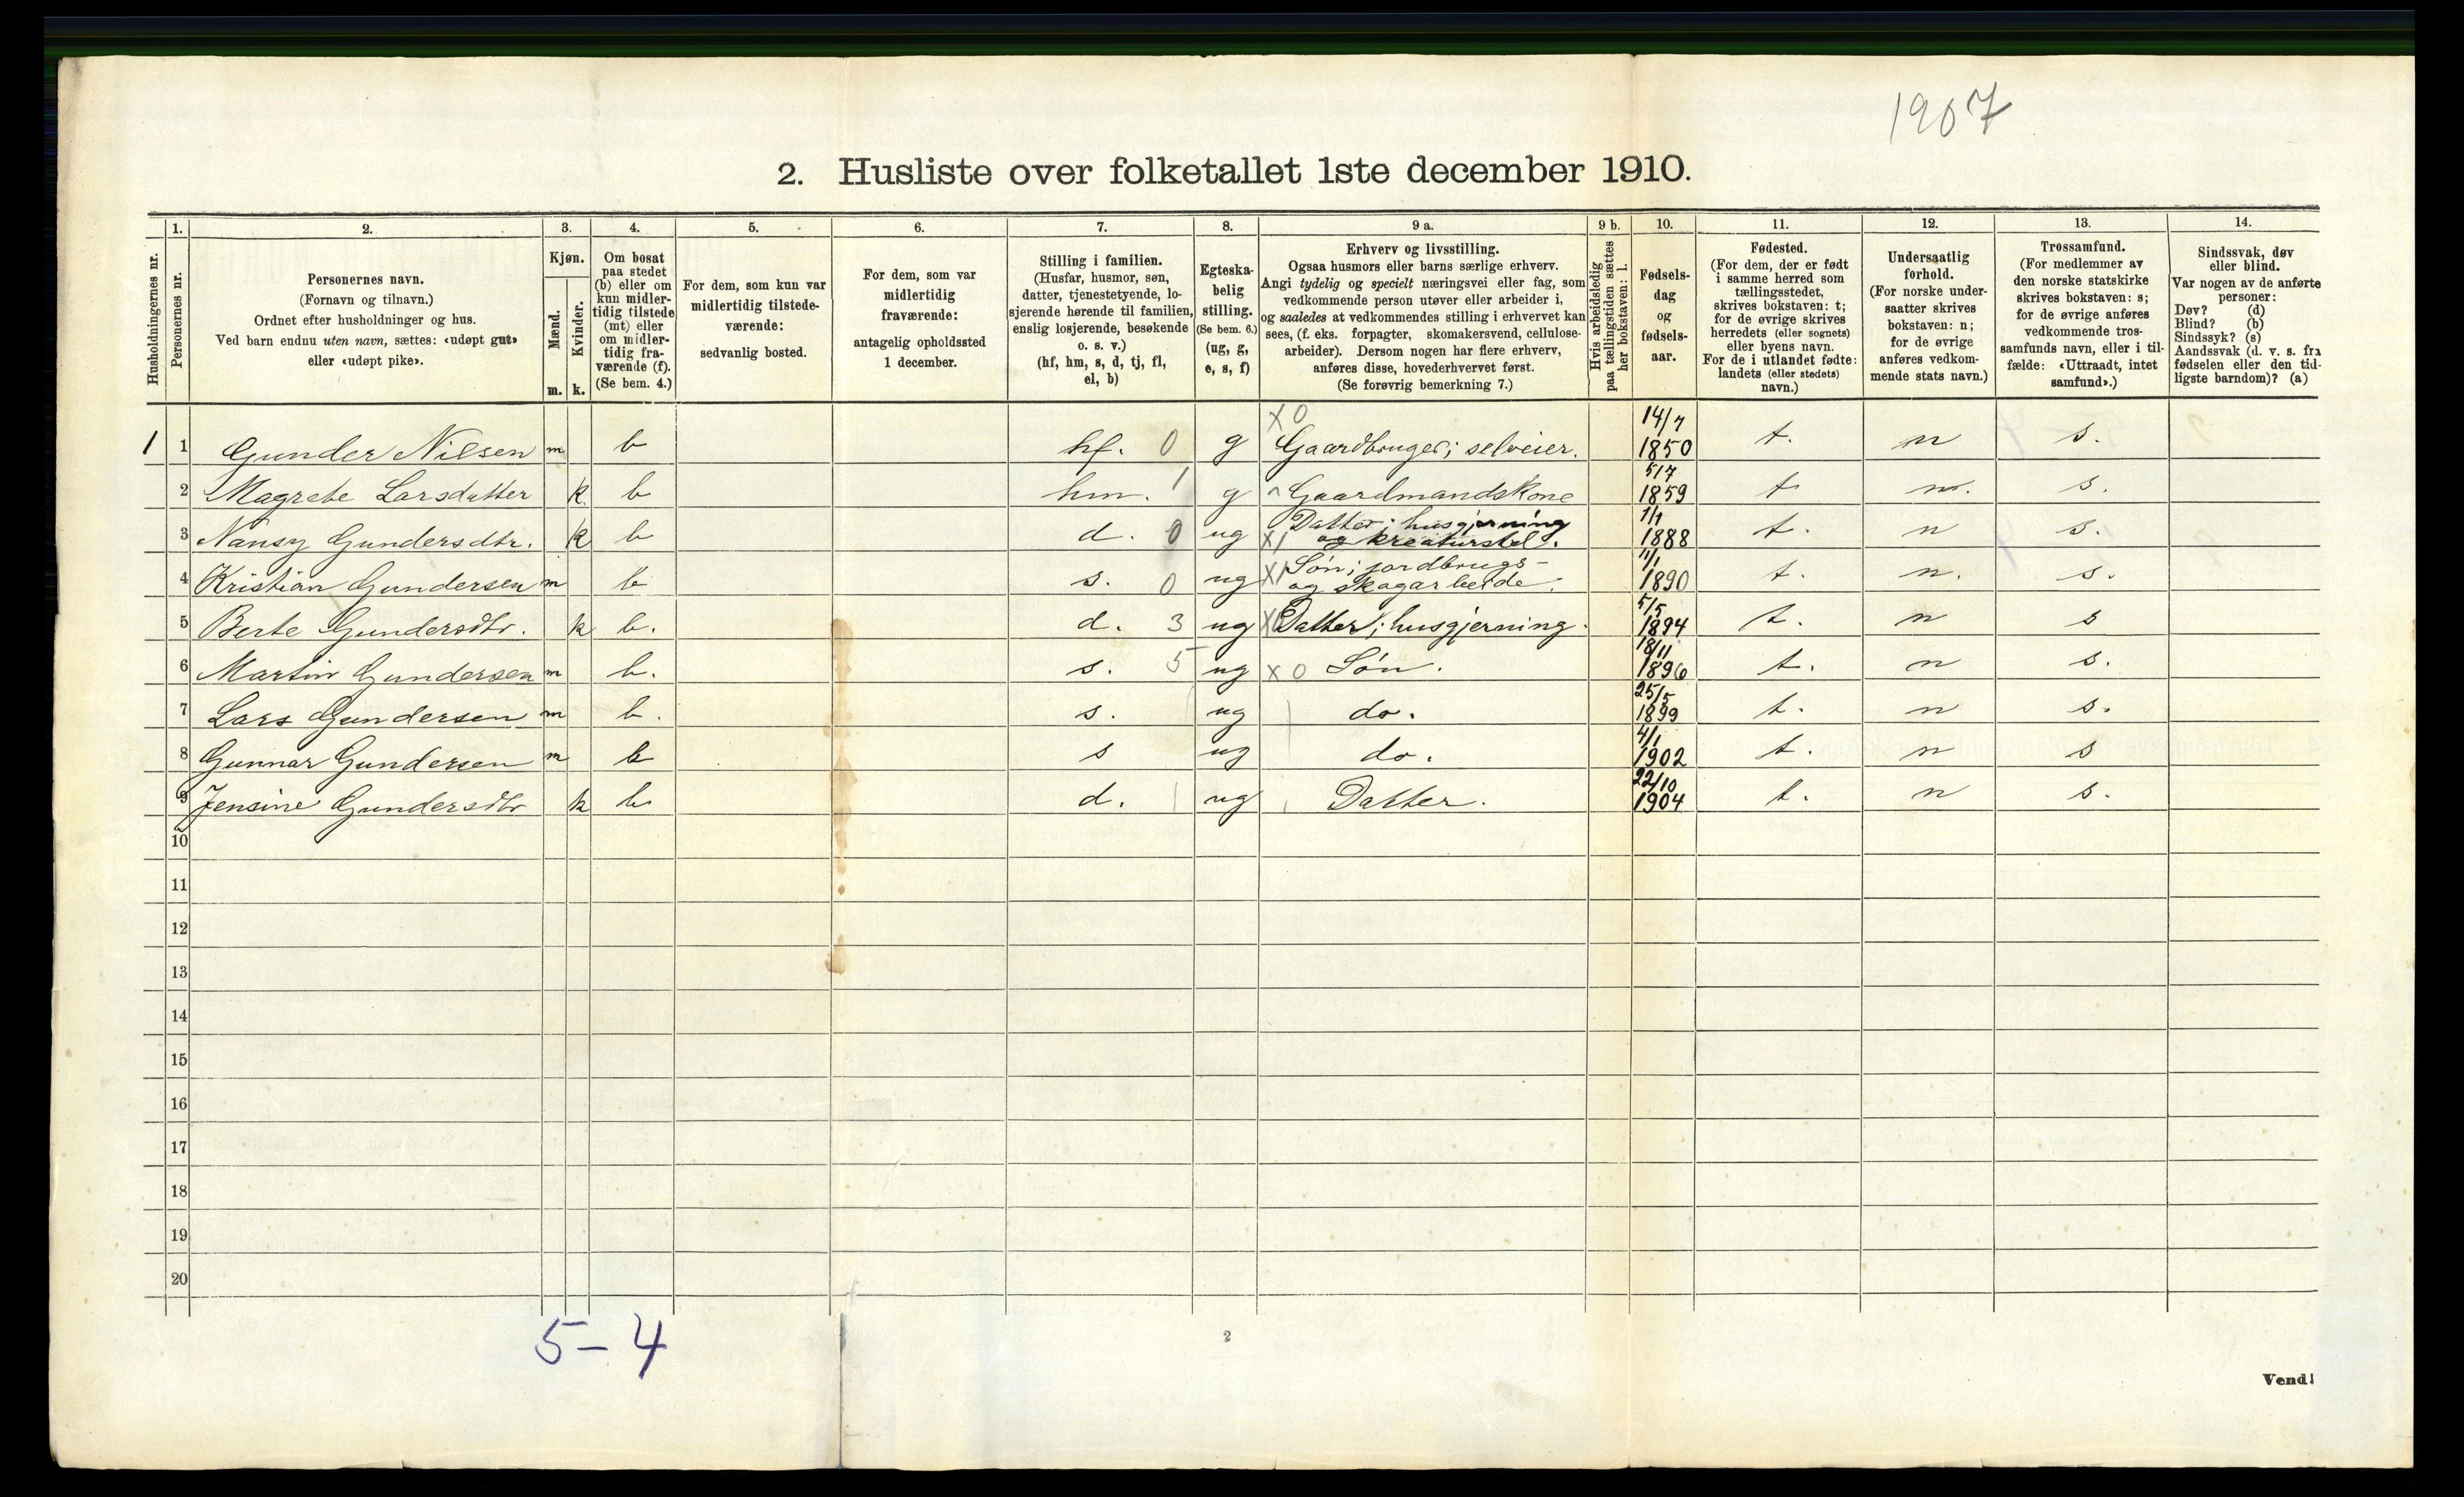 1907
2. Husliste over folketallet 1ste december 1910.
1. 2. 3. 4. 5. 6. 7. 8. 9 a. 9 b. 10. 11. 12. 13. 14.
Husholdningernes nr.
Personernes nr.
Personernes navn.
(Fornavn og tilnavn.)
Ordnet efter husholdninger og hus.
Ved barn endnu uten navn, sættes: «udøpt gut»
eller «udøpt pike».
Kjøn.
Mænd.
Kvinder.
m. k.
Om bosat
paa stedet
(b) eller om
kun midler-
tidig tilstede
(mt) eller
om midler-
tidig fra-
værende (f).
(Se bem. 4.)
For dem, som kun var
midlertidig tilstede-
værende:
sedvanlig bosted.
For dem, som var
midlertidig
fraværende:
antagelig opholdssted
1 december.
Stilling i familien.
(Husfar, husmor, søn,
datter, tjenestetyende, lo-
sjerende hørende til familien,
enslig losjerende, besøkende
o. s. v.)
(hf, hm, s, d, tj, fl,
el, b)
Egteska-
belig
stilling.
(Se bem. 6.)
(ug, g,
e, s, f)
Erhverv og livsstilling.
Ogsaa husmors eller barns særlige erhverv.
Angi tydelig og specielt næringsvei eller fag, som
vedkommende person utøver eller arbeider i,
og saaledes at vedkommendes stilling i erhvervet kan
sees, (f. eks. forpagter, skomakersvend, cellulose-
arbeider). Dersom nogen har flere erhverv,
anføres disse, hovederhvervet først.
(Se forøvrig bemerkning 7.)
Hvis arbeidsledig
paa tællingstiden sættes
her bokstaven: l.
Fødsels-
dag
og
fødsels-
aar.
Fødested.
(For dem, der er født
i samme herred som
tællingsstedet,
skrives bokstaven: t;
for de øvrige skrives
herredets (eller sognets)
eller byens navn.
For de i utlandet fødte:
landets (eller stedets)
navn.)
Undersaatlig
forhold.
(For norske under-
saatter skrives
bokstaven: n;
for de øvrige
anføres vedkom-
mende stats navn.)
Trossamfund.
(For medlemmer av
den norske statskirke
skrives bokstaven: s;
for de øvrige anføres
vedkommende tros-
samfunds navn, eller i til-
fælde: «Uttraadt, intet
samfund».)
Sindssvak, døv
eller blind.
Var nogen av de anførte
personer:
Døv? (d)
Blind? (b)
Sindssyk? (s)
Aandssvak (d. v. s. fra
fødselen eller den tid-
ligste barndom)? (a)
1 1 Gunder Nilsen m b hf. 0 g X0 Gaardbruger; selveier. 14/7 1850 t. n s.
2 Magrete Larsdatter k. b hm. 1 g Gaardmandskone 5/7 1859 t n. s.
3 Nansy Gundersdtr. k b d. 0 ug X1 Datter; husgjerning og kreaturstel. 1/1 1888 t. n s.
4 Kristian Gundersen m b s. 0 ug X1 Søn; jordbrugs- og skogarbeide. 11/1 1890 t. n. s.
5 Berte Gundersdtr. k b. d. 3 ug Datter; husgjerning. 5/5 1894 t. n s
6 Martin Gundersen m b. s. 5 ug X0 Søn. 18/11 1896 t. n s.
7 Lars Gundersen m b. s. ug do. 25/5 1899 t. n s.
8 Gunnar Gundersen m b s ug do. 4/1 1902 t. n s
9 Jensine Gundersdtr k b d. ug Datter. 22/10 1904 t. n s.
10
11
12
13
14
15
16
17
18
19
20
5 - 4
2
Vend!